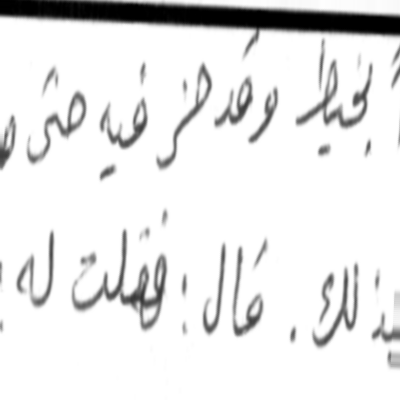 بخيط وقد حز فيه حتى
بذلك . قال : فقلت له